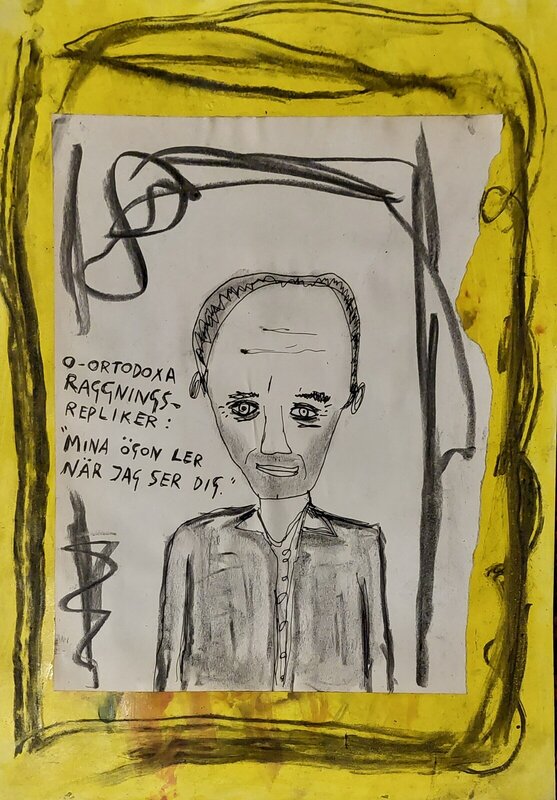 O-ORTODOXA
RAGGNINGS-
REPLIKER:
"MINA ÖGON LER
NÄR JAG SER DIG."